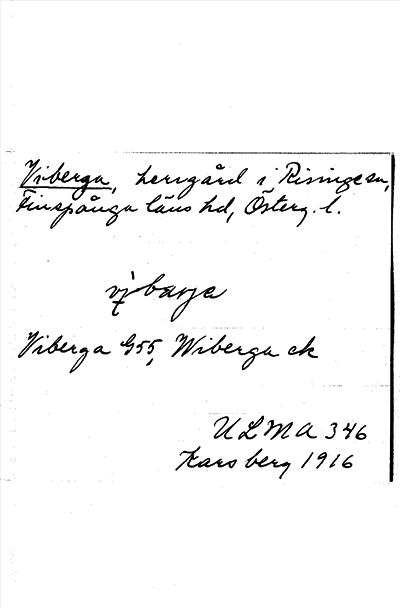 Viberga, herrgård i Risinge sn,
Finspånga läns hd, Österg. l.
Viberga G55, Wiberga ek
ULMA 346
Karsberg 1916